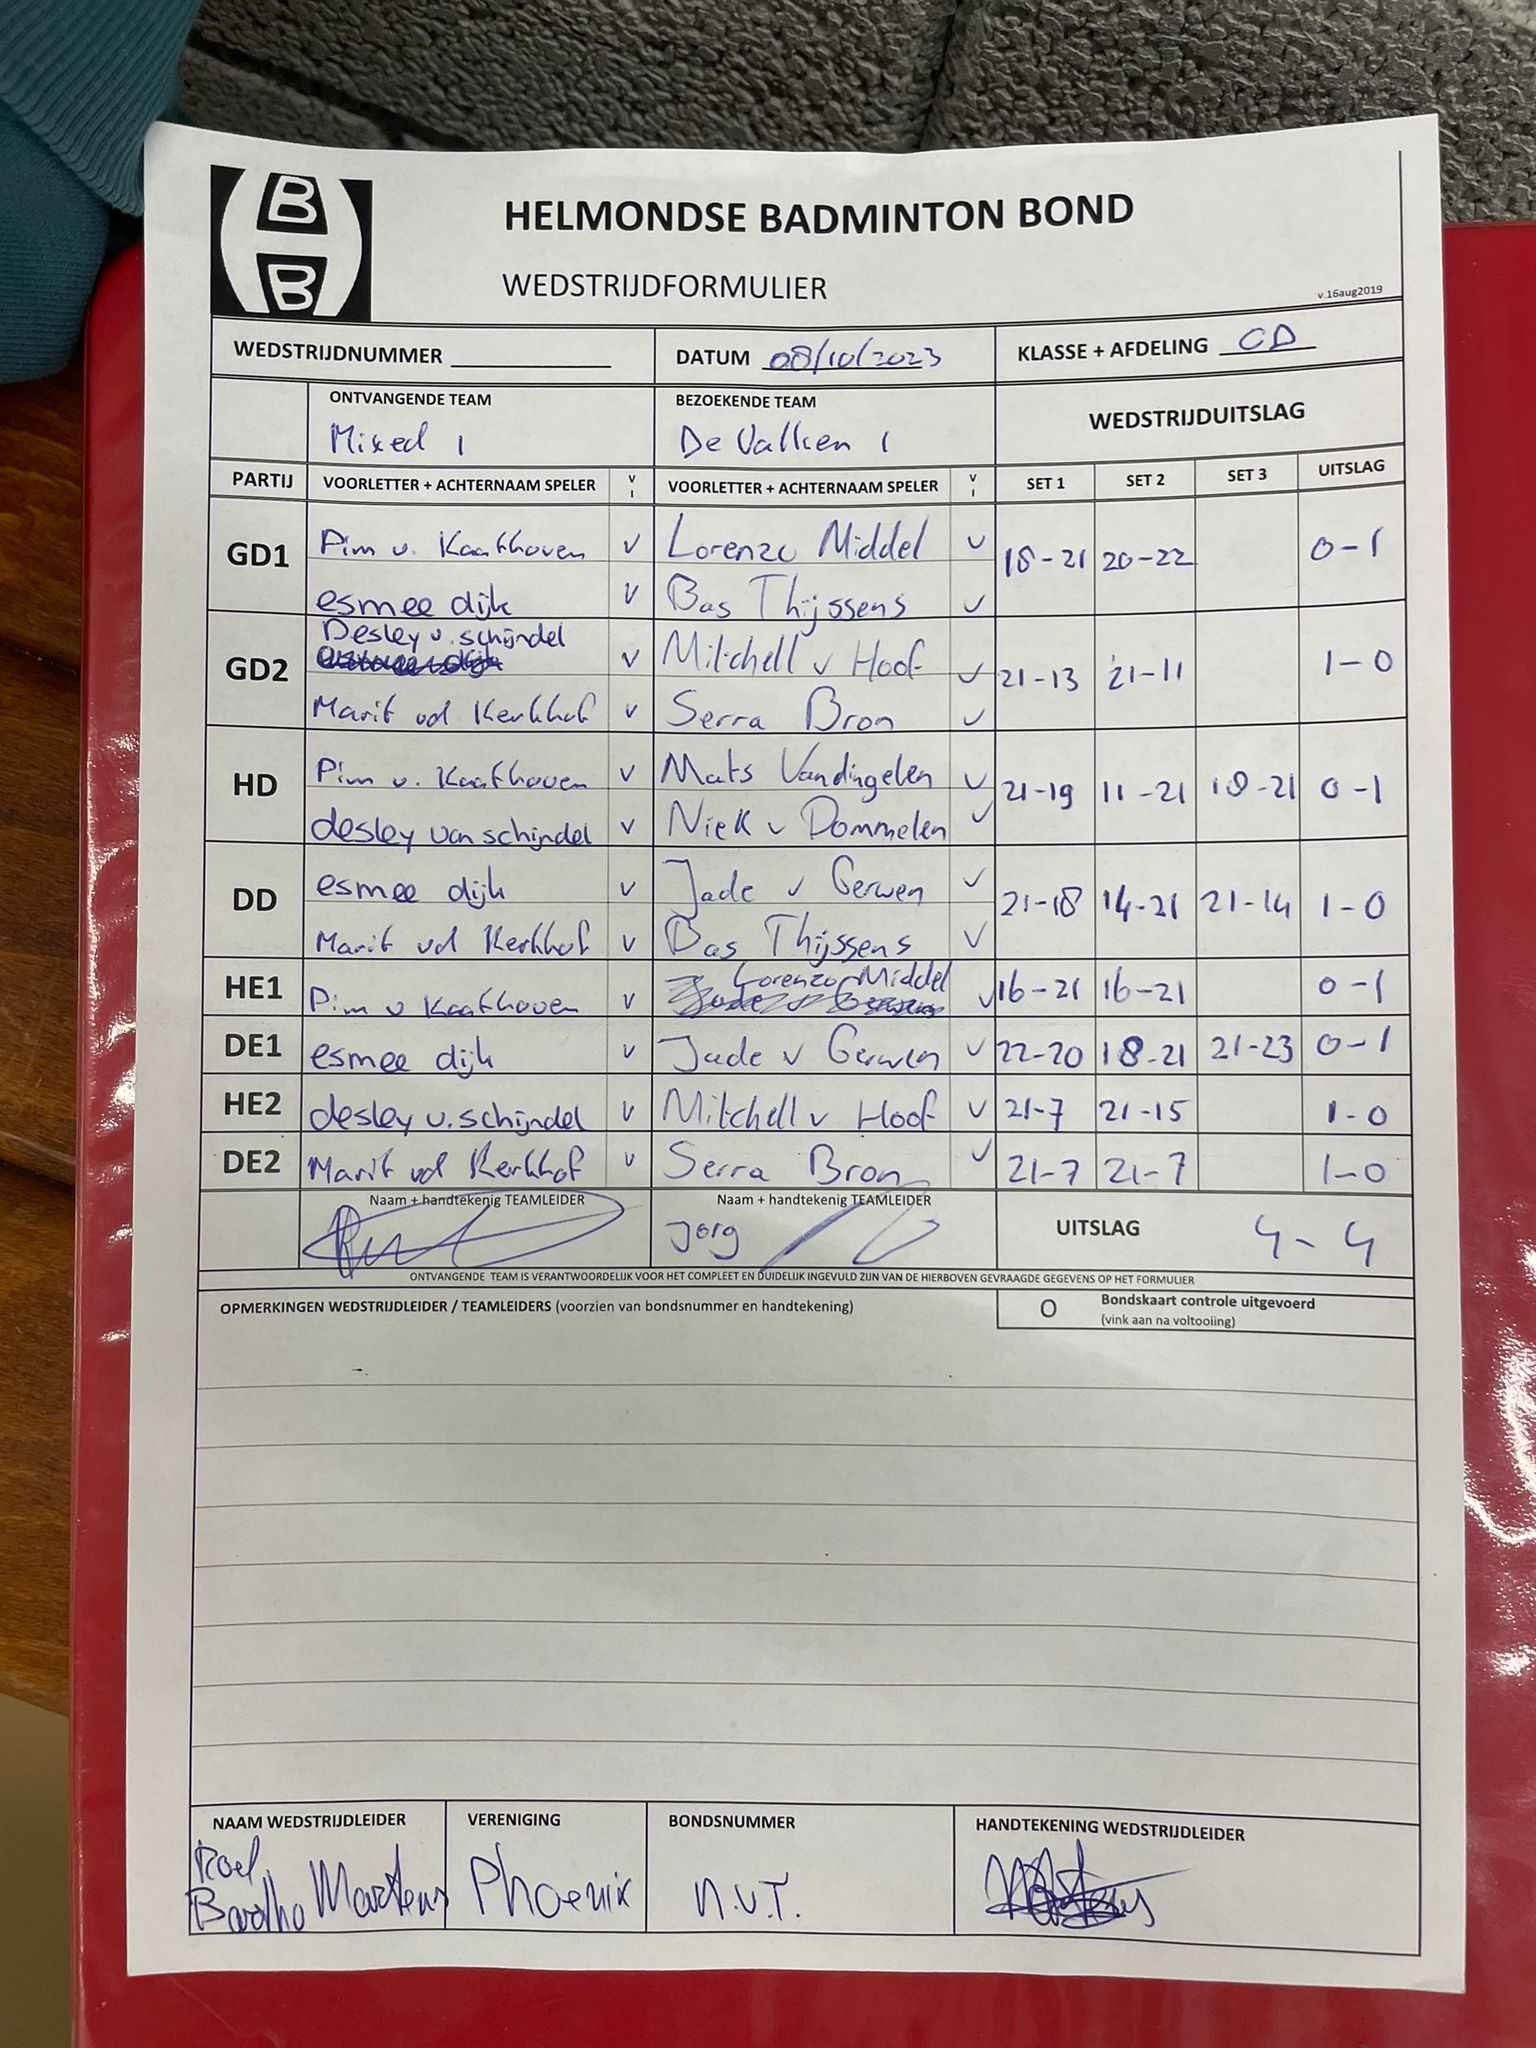 B
B
HELMONDSE BADMINTON BOND
WEDSTRIJDFORMULIER
v.16aug2019
WEDSTRIJDNUMMER DATUM 08/10/2023 KLASSE + AFDELING CD
ONTVANGENDE TEAM BEZOEKENDE TEAM WEDSTRIJDUITSLAG
Mixed 1 De Valken 1
PARTIJ VOORLETTER + ACHTERNAAM SPELER V I VOORLETTER + ACHTERNAAM SPELER V I SET 1 SET 2 SET 3 UITSLAG
GD1 Pim v. Kaathoven V Lorenzo Middel V 18-21 20-22 0-1
esmee dijk V Bas Thijssens V
GD2 Desley v. schijndel V Mitchell v Hoof V 21-13 21-11 1-0
Marit vd Kerkhof V Serra Bron V
HD Pim v. Kaathoven V Mats Vandingelen V 21-19 11-21 18-21 0-1
desley van schijndel V Niek v Dommelen V
DD esmee dijk V Jade v Gerwen V 21-18 14-21 21-14 1-0
Marit vd Kerkhof V Bas Thijssens V
HE1 Pim v Kaathoven V Lorenzo Middel V 16-21 16-21 0-1
DE1 esmee dijk V Jade v Gerwen V 22-20 18-21 21-23 0-1
HE2 desley v. schijndel V Mitchell v Hoof V 21-7 21-15 1-0
DE2 Marit vd Kerkhof V Serra Bron V 21-7 21-7 1-0
Naam + handtekenig TEAMLEIDER Naam + handtekenig TEAMLEIDER UITSLAG 4-4
Jorg
ONTVANGENDE TEAM IS VERANTWOORDELIJK VOOR HET COMPLEET EN DUIDELIJK INGEVULD ZIJN VAN DE HIERBOVEN GEVRAAGDE GEGEVENS OP HET FORMULIER
OPMERKINGEN WEDSTRIJDLEIDER / TEAMLEIDERS (voorzien van bondsnummer en handtekening) O Bondskaart controle uitgevoerd
(vink aan na voltooiing)
NAAM WEDSTRIJDLEIDER VERENIGING BONDSNUMMER HANDTEKENING WEDSTRIJDLEIDER
Roel
Martens Phoenix n.v.T.